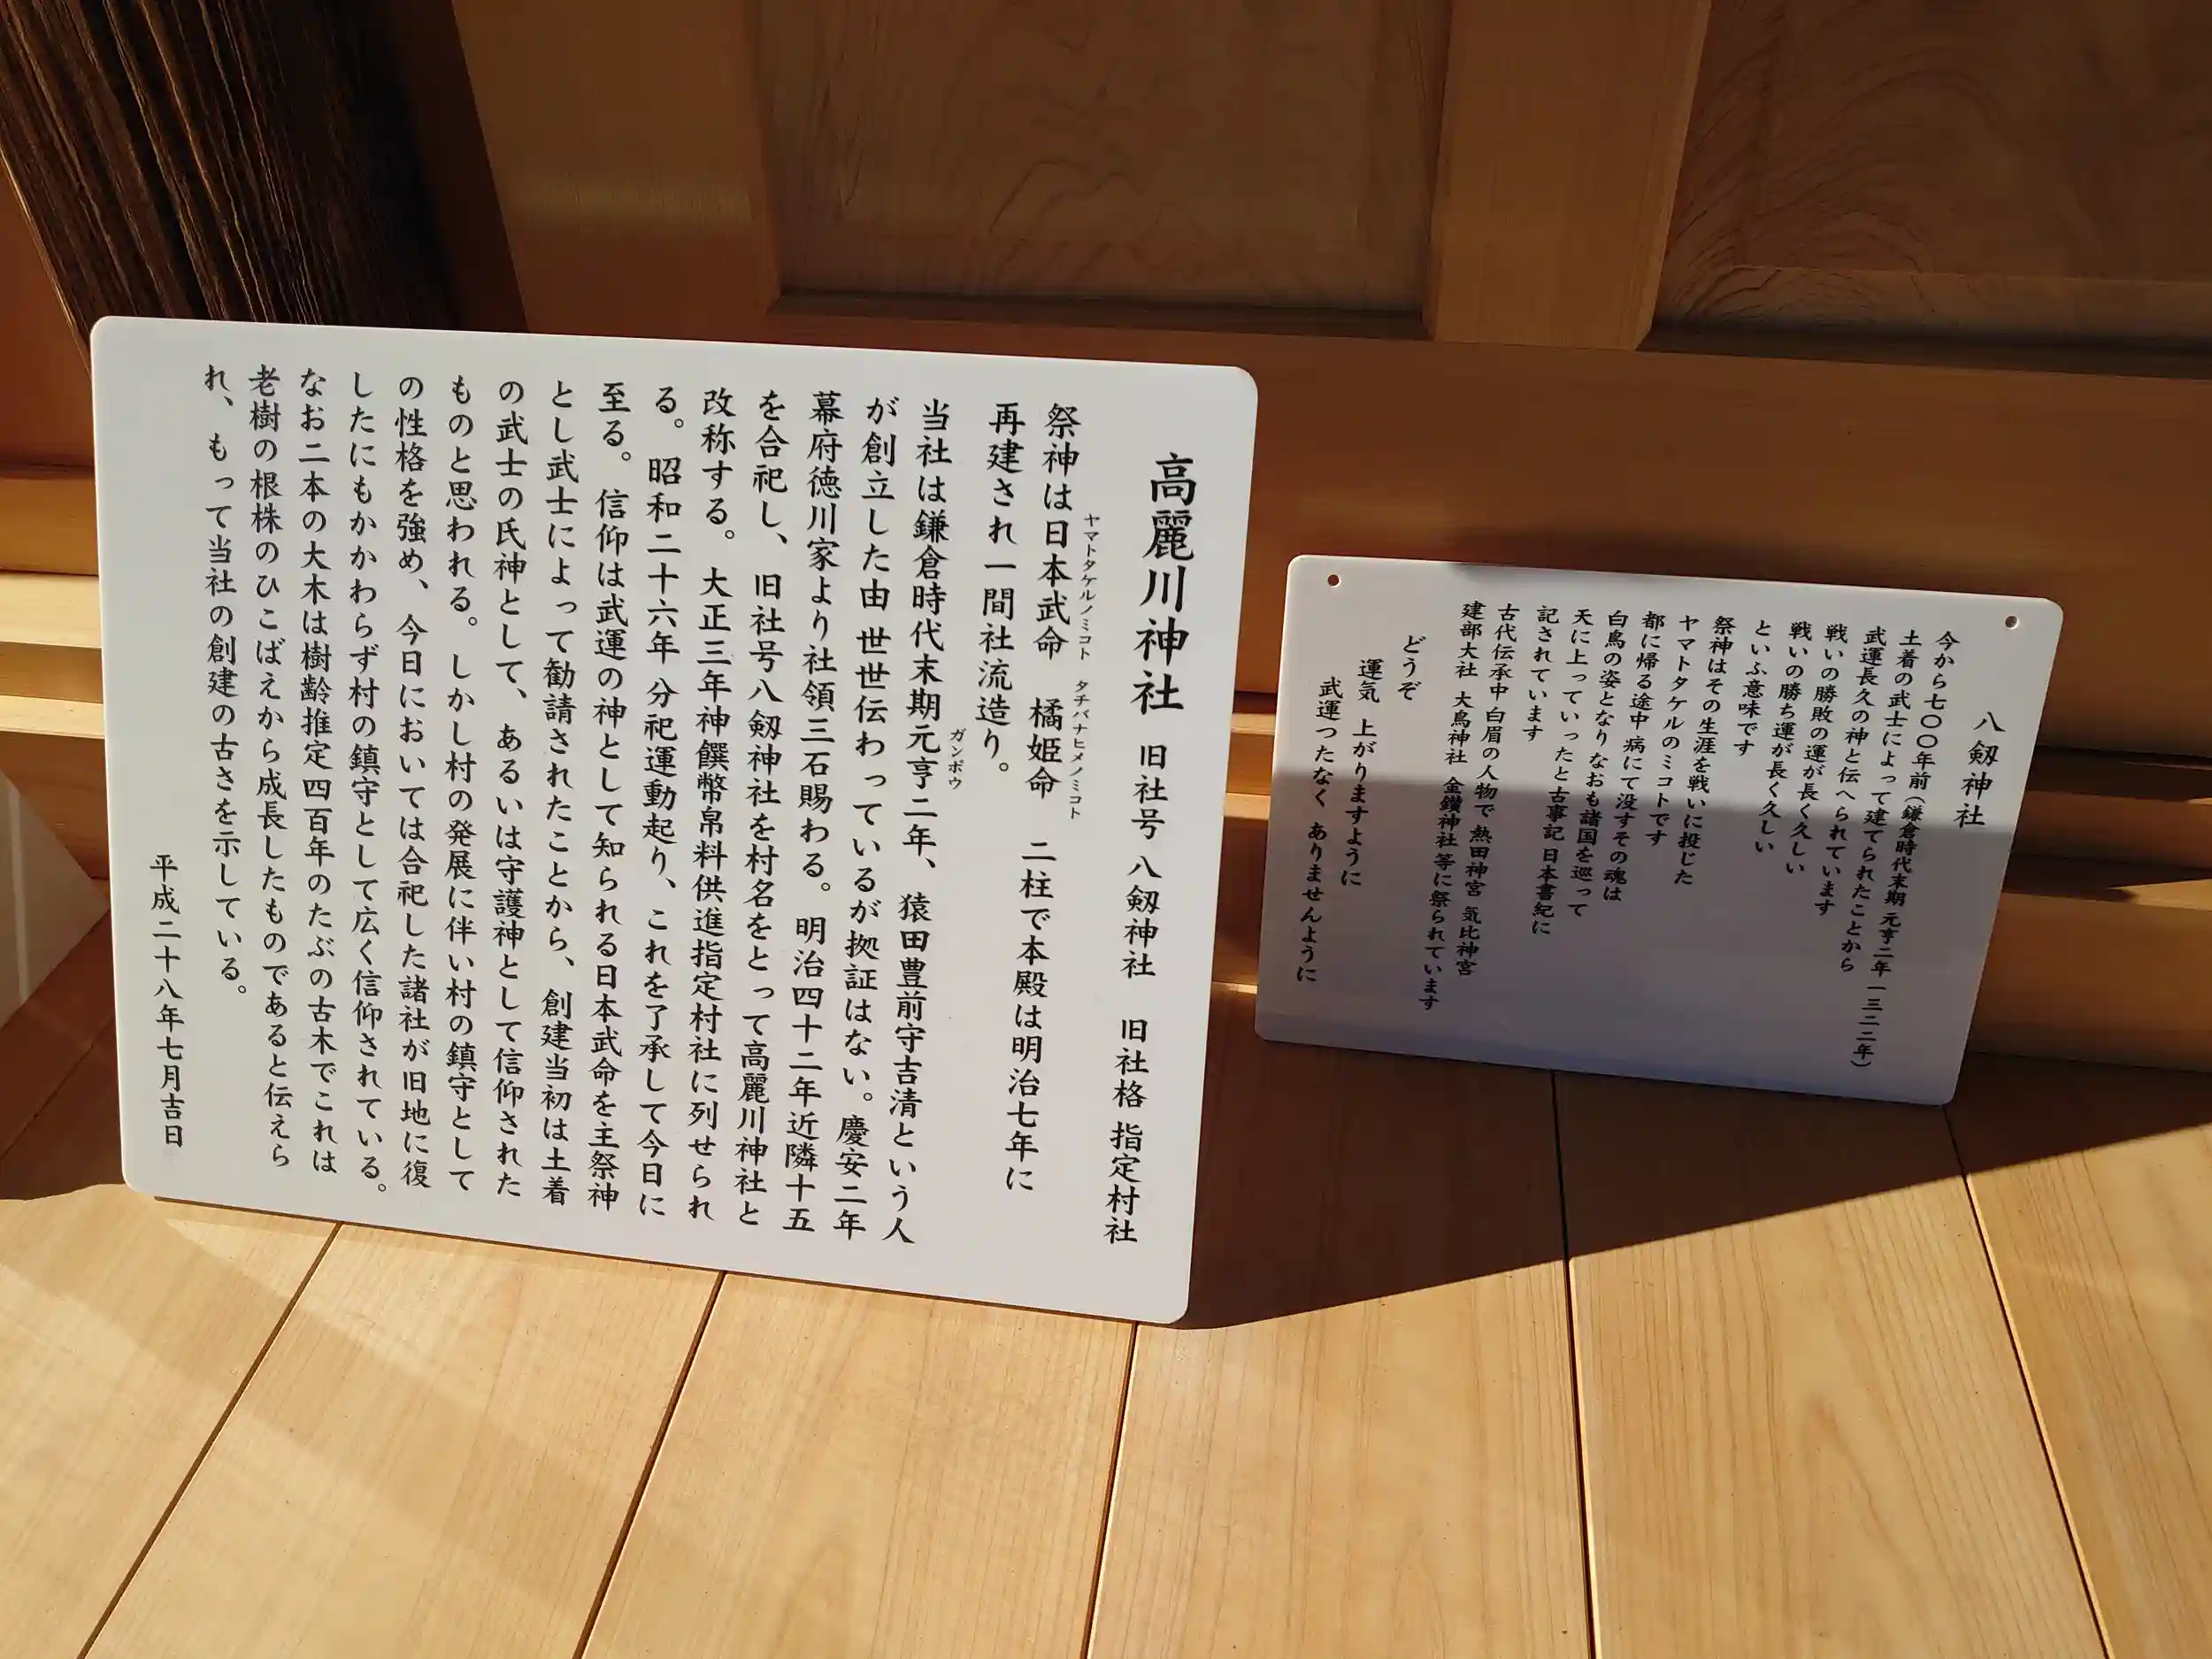 高麗川神社 旧社号 八剱神社 旧社格 指定村社
祭神は日本武命 橘姫命 二柱で本殿は明治七年に
ヤマトタケルノミコト タチバナヒメノミコト
再建され一間社流造り。
当社は鎌倉時代末期元亨二年、猿田豊前守吉清という人
ガンボウ
が創立した由 世世伝わっているが拠証はない。慶安二年
幕府徳川家より社領三石賜わる。明治四十二年近隣十五
を合祀し、旧社号八剱神社を村名をとって高麗川神社と
改称する。大正三年神饌幣帛料供進指定村社に列せられ
る。昭和二十六年 分祀運動起り、これを了承して今日に
至る。信仰は武運の神として知られる日本武命を主祭神
とし武士によって勧請されたことから、創建当初は土着
の武士の氏神として、あるいは守護神として信仰された
ものと思われる。しかし村の発展に伴い村の鎮守として
の性格を強め、今日においては合祀した諸社が旧地に復
したにもかかわらず村の鎮守として広く信仰されている。
なお二本の大木は樹齢推定四百年のたぶの古木でこれは
老樹の根株のひこばえから成長したものであると伝えら
れ、もって当社の創建の古さを示している。
平成二十八年七月吉日
八剱神社
今から七〇〇年前(鎌倉時代末期 元亨二年 一三二二年)
土着の武士によって建てられたことから
武運長久の神と伝へられています
戦いの勝敗の運が長く久しい
戦いの勝ち運が長く久しい
といふ意味です
祭神はその生涯を戦いに投じた
ヤマトタケルのミコトです
都に帰る途中 病にて没すその魂は
白鳥の姿となり なおも諸国を巡って
天に上っていったと古事記 日本書紀に
記されています
古代伝承中 白眉の人物で 熱田神宮 気比神宮
建部大社 大鳥神社 金鑚神社 等に祭られています
どうぞ
運気 上がりますように
武運つたなく ありませんように